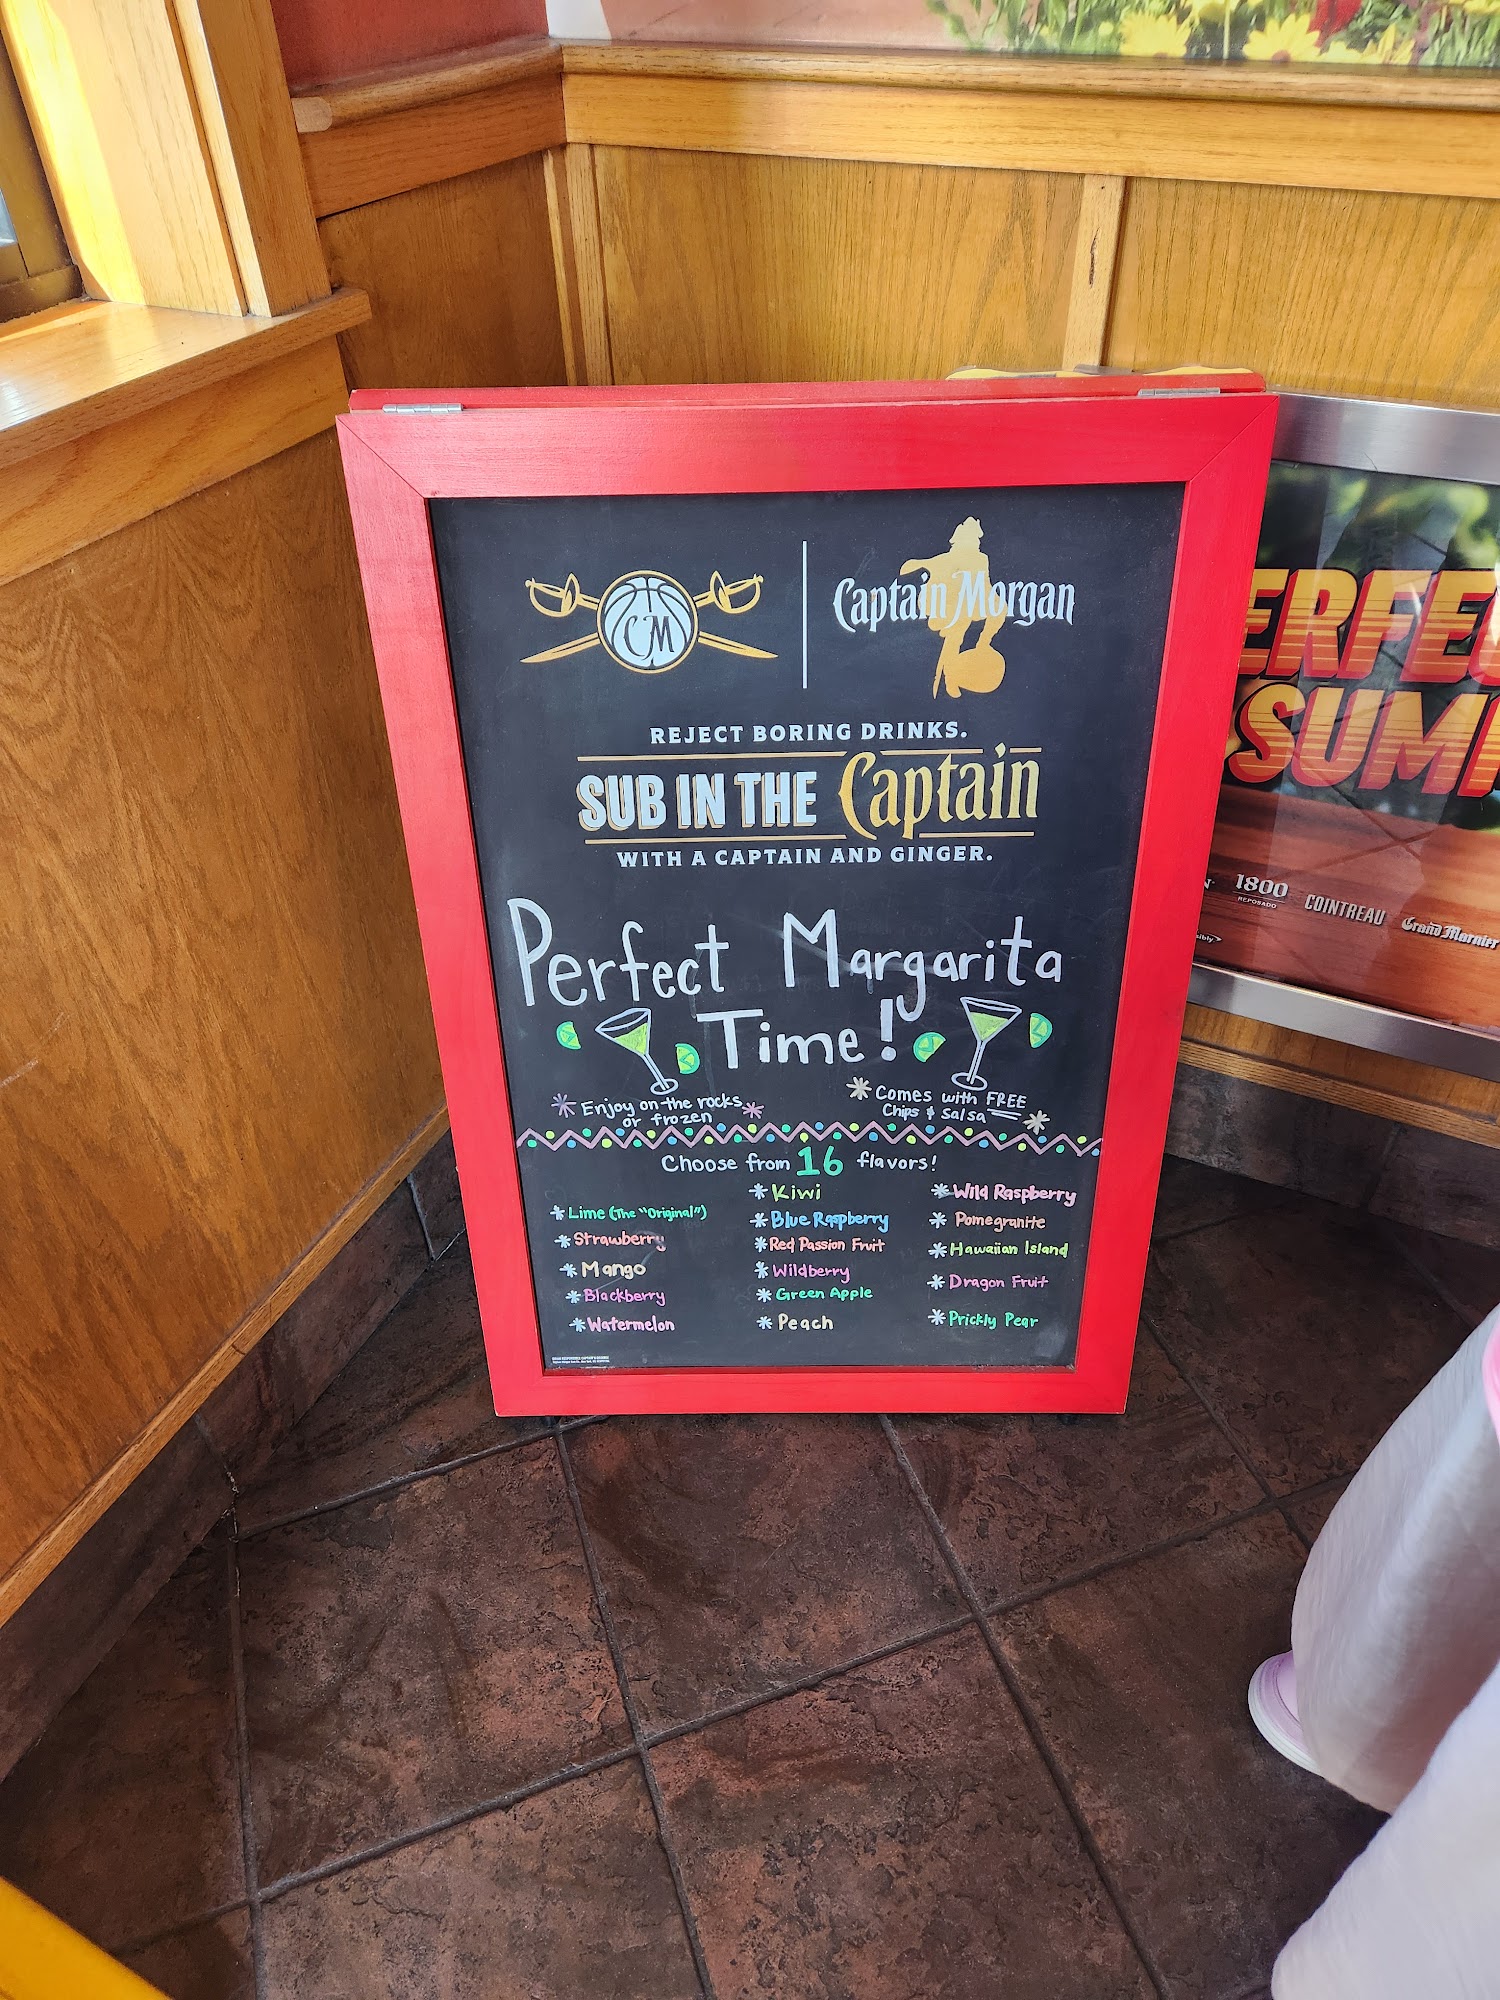 CM
Captain Morgan
REJECT BORING DRINKS.
SUB IN THE Captain
WITH A CAPTAIN AND GINGER.
Perfect Margarita
Time!
* Enjoy on the rocks *
or frozen
* Comes with FREE
Chips & Salsa *
Choose from 16 flavors!
* Lime (The "Original")
* Strawberry
* Mango
* Blackberry
* Watermelon
* Kiwi
* Blue Raspberry
* Red Passion Fruit
* Wildberry
* Green Apple
* Peach
* Wild Raspberry
* Pomegranite
* Hawaiian Island
* Dragon Fruit
* Prickly Pear
ERFE
SUM
1800
REPOSADO
COINTREAU
Grand Marnier